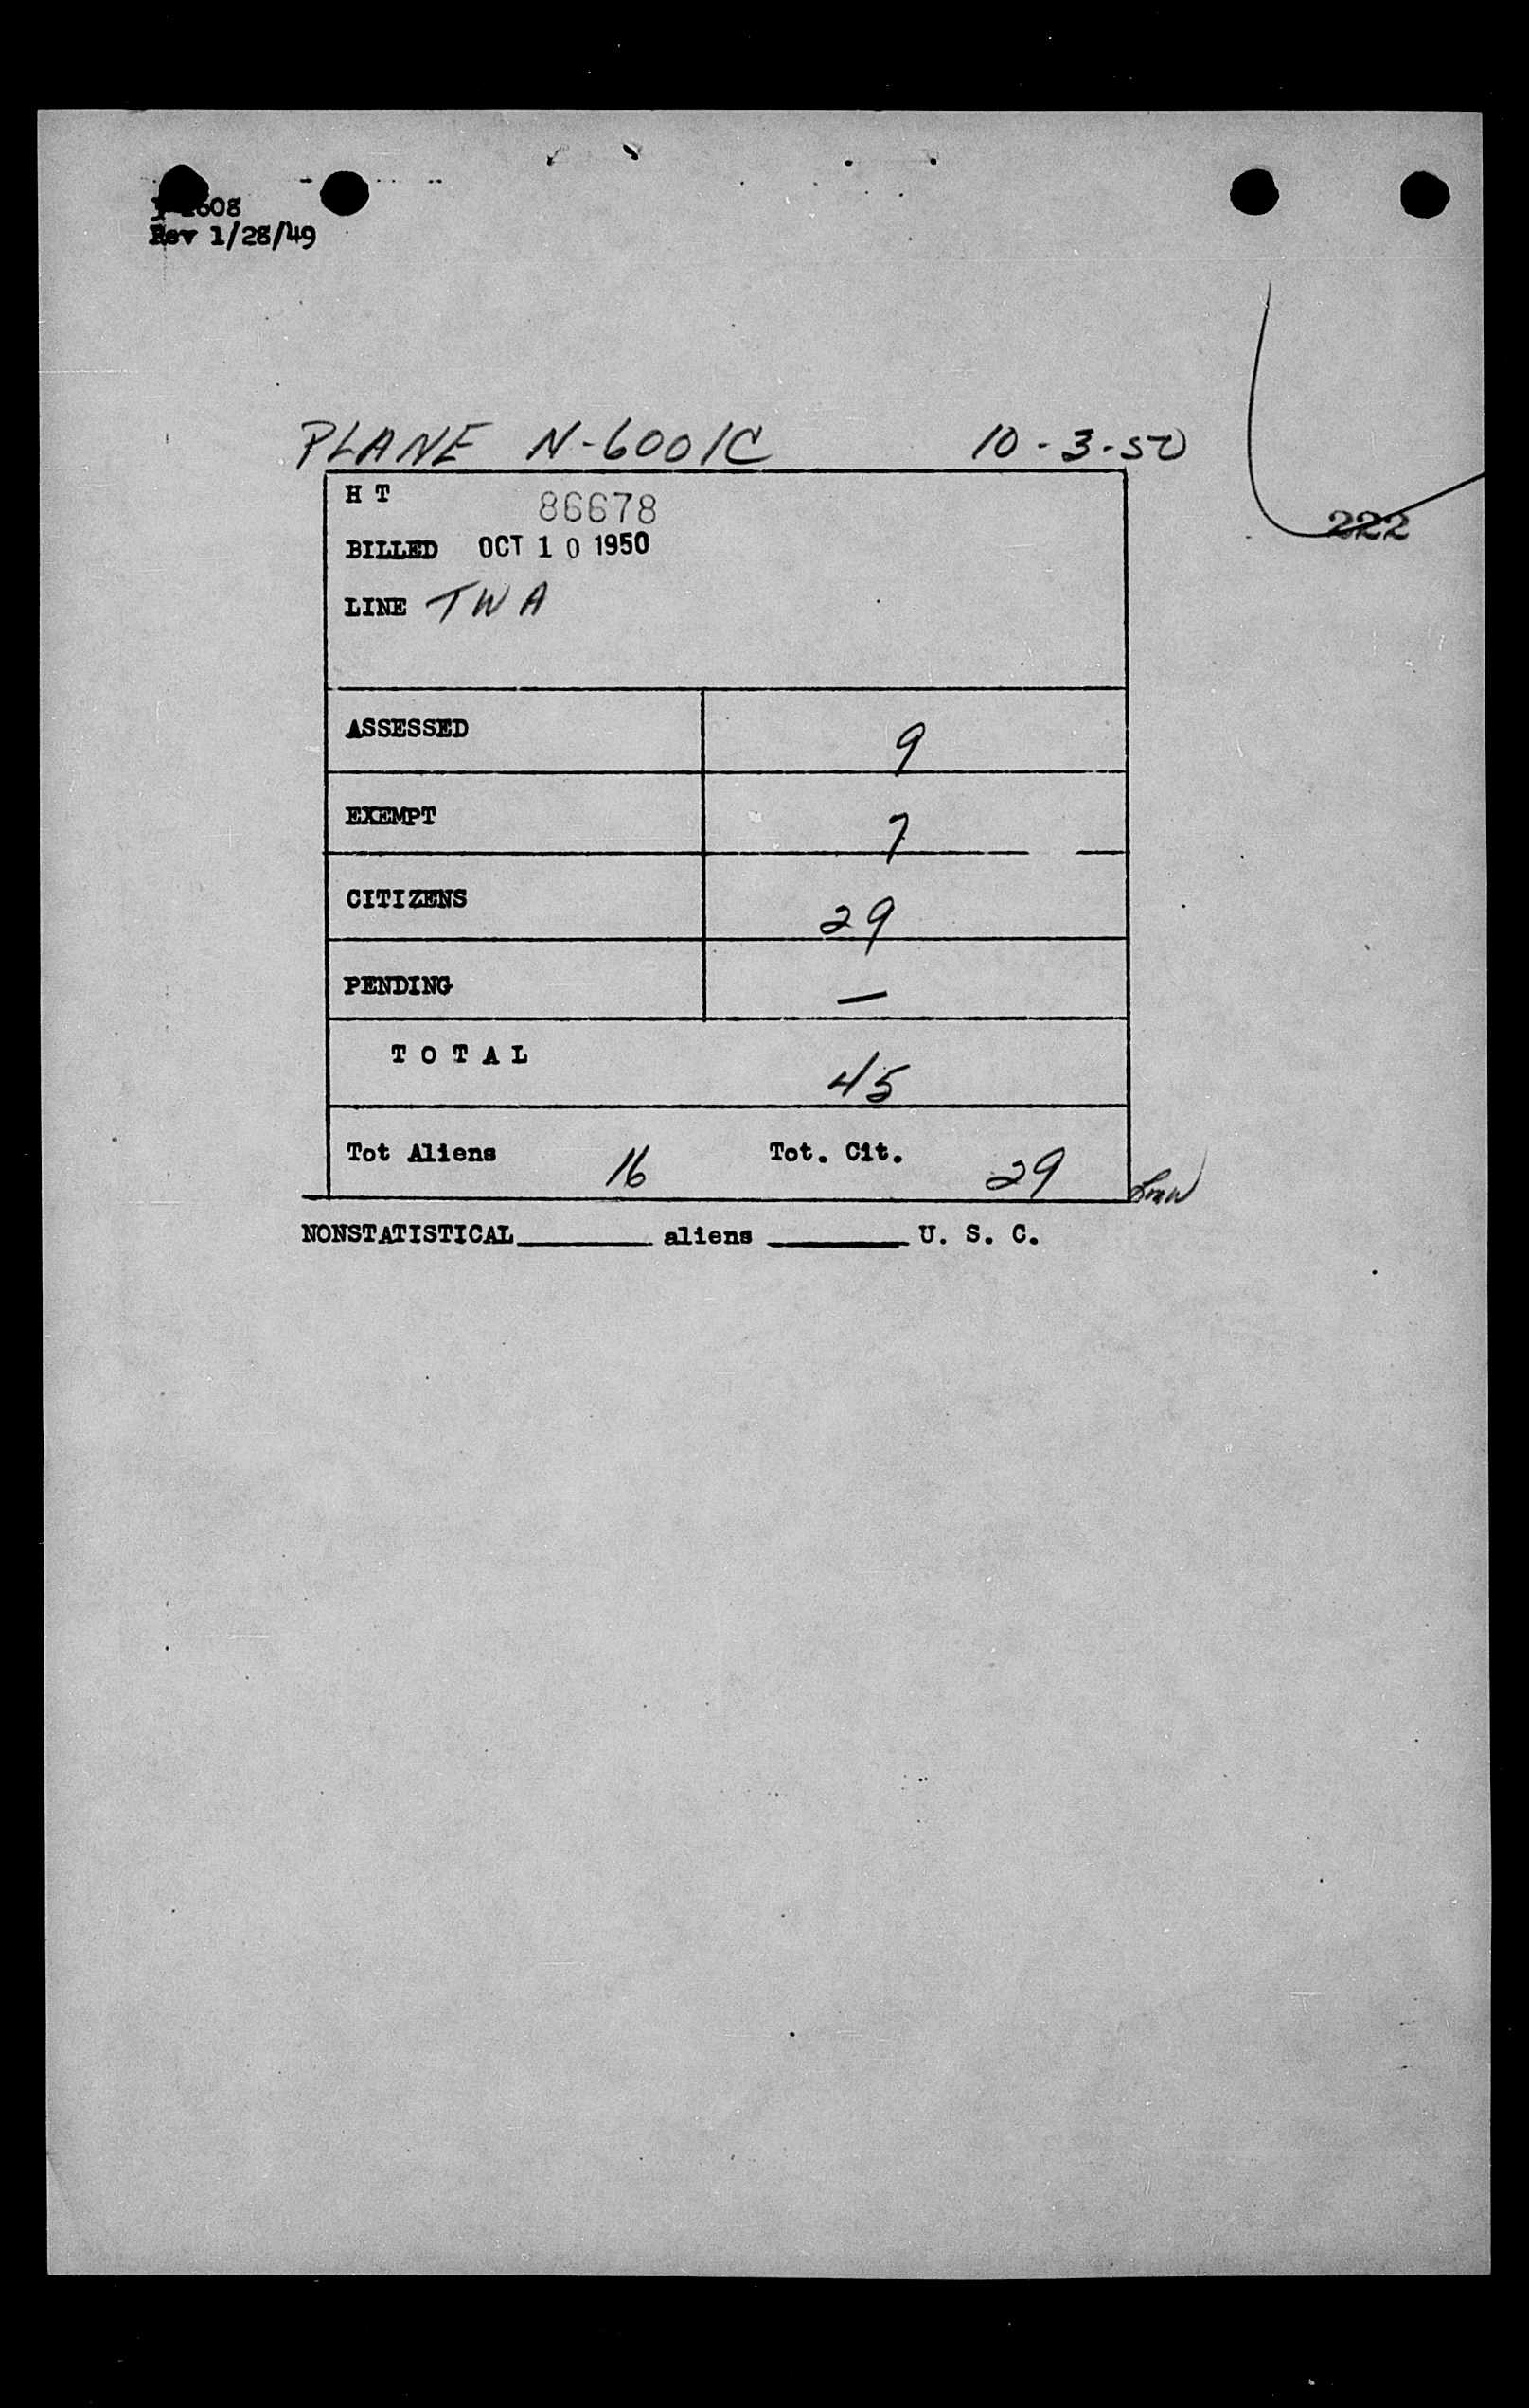 Rev 1/28/49
PLANE N-6001C 10-3-50
H T 86678
222
BILLED OCT 10 1950
LINE TWA
ASSESSED 9
EXEMPT 7
CITIZENS 29
PENDING —
TOTAL 45
Tot Aliens 16 Tot. Cit. 29
NONSTATISTICAL______ aliens ______ U. S. C.